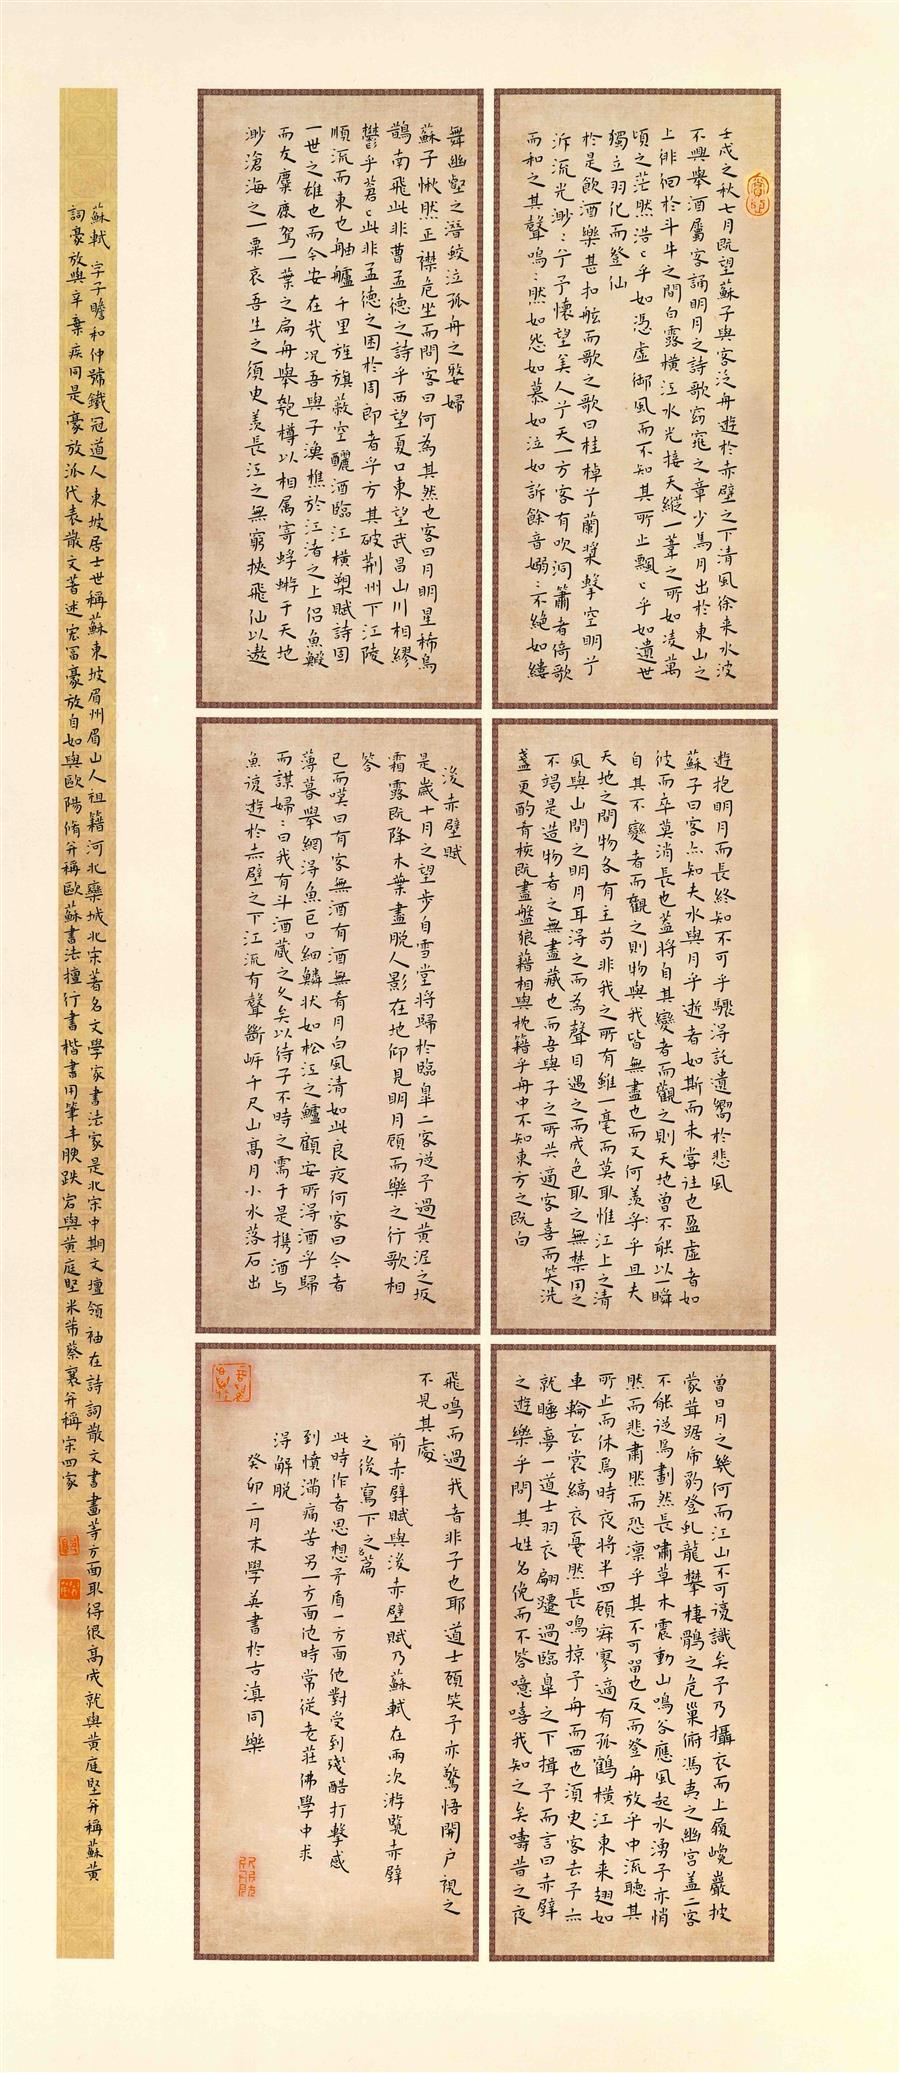 壬戌之秋七月既望蘇子與客泛舟遊於赤壁之下清風徐来水波
不興舉酒屬客誦明月之詩歌窈窕之章少焉月出於東山之
上徘徊於斗牛之間白露横江水光接天縱一葦之所如凌萬
頃之茫然浩〻乎如憑虛御風而不知其所止飄〻乎如遺世
獨立羽化而登仙
於是飲酒樂甚扣舷而歌之歌曰桂棹兮蘭槳擊空明兮
泝流光渺〻兮予懷望美人兮天一方客有吹洞簫者倚歌
而和之其聲鳴〻然如怨如慕如泣如訴餘音嫋〻不絕如縷
舞幽壑之潛蛟泣孤舟之嫠婦
蘇子愀然正襟危坐而問客曰何為其然也客曰月明星稀烏
鵲南飛此非曹孟德之詩乎西望夏口東望武昌山川相繆
鬱乎蒼〻此非孟德之困於周郎者乎方其破荆州下江陵
順流而東也舳艫千里旌旗蔽空釃酒臨江横槊賦詩固
一世之雄也而今安在哉况吾與子漁樵於江渚之上侣魚鰕
而友麋鹿駕一葉之扁舟舉匏樽以相属寄蜉蝣于天地
渺滄海之一粟哀吾生之須臾羨長江之無窮挾飛仙以遨
遊抱明月而長終知不可乎驟得託遺響於悲風
蘇子曰客亦知夫水與月乎逝者如斯而未嘗往也盈虛者如
彼而卒莫消長也蓋将自其變者而觀之則天地曾不能以一瞬
自其不變者而觀之則物與我皆無盡也而又何羨乎且夫
天地之間物各有主苟非我之所有雖一毫而莫取惟江上之清
風與山間之明月耳得之而為聲目遇之而成色取之無禁用之
不竭是造物者之無盡藏也而吾與子之所共適客喜而笑洗
盞更酌肴核既盡盤狼籍相與枕籍乎舟中不知東方之既白
後赤壁賦
是歲十月之望步自雪堂将歸於臨皐二客從予過黄泥之坂
霜露既降木葉盡脱人影在地仰見明月顧而樂之行歌相
答
已而嘆曰有客無酒有酒無肴月白風清如此良夜何客曰今者
薄暮舉網得魚巨口細鱗状如松江之鱸顧安所得酒乎歸
而謀婦〻曰我有斗酒藏之久矣以待子不時之需于是携酒与
魚復遊於赤壁之下江流有聲斷岸千尺山高月小水落石出
曾日月之幾何而江山不可復識矣予乃攝衣而上履巉巖披
蒙茸踞虎豹登虬龍攀棲鶻之危巢俯馮夷之幽宫蓋二客
不能從焉劃然長嘯草木震動山鳴谷應風起水湧予亦悄
然而悲肅然而恐凛乎其不可留也反而登舟放乎中流聽其
所止而休焉時夜将半四顧寂寥適有孤鶴横江東来翅如
車輪玄裳縞衣戛然長鳴掠予舟而西也須臾客去予亦
就睡夢一道士羽衣翩躚過臨皐之下揖予而言曰赤壁
之遊樂乎問其姓名俛而不答噫嘻我知之矣疇昔之夜
飛鳴而過我者非子也耶道士顧笑予亦驚悟開户視之
不見其處
前赤壁賦與後赤壁賦乃蘇軾在兩次游覽赤壁
之後寫下之篇
此時作者思想矛盾一方面他對受到殘酷打擊感
到憤滿痛苦另一方面他時常從老莊佛學中求
得解脱
癸卯二月末學英書於古滇同樂
蘇軾字子瞻和仲號鐵冠道人東坡居士世稱蘇東坡眉州眉山人祖籍河北欒城北宋著名文學家書法家是北宋中期文壇領袖在詩詞散文書畫等方面取得很高成就與黄庭堅并稱蘇黄
詞豪放與辛棄疾同是豪放派代表散文著述宏富豪放自如與歐陽脩并稱歐蘇書法擅行書楷書用筆丰腴跌宕與黄庭堅米芾蔡襄并稱宋四家